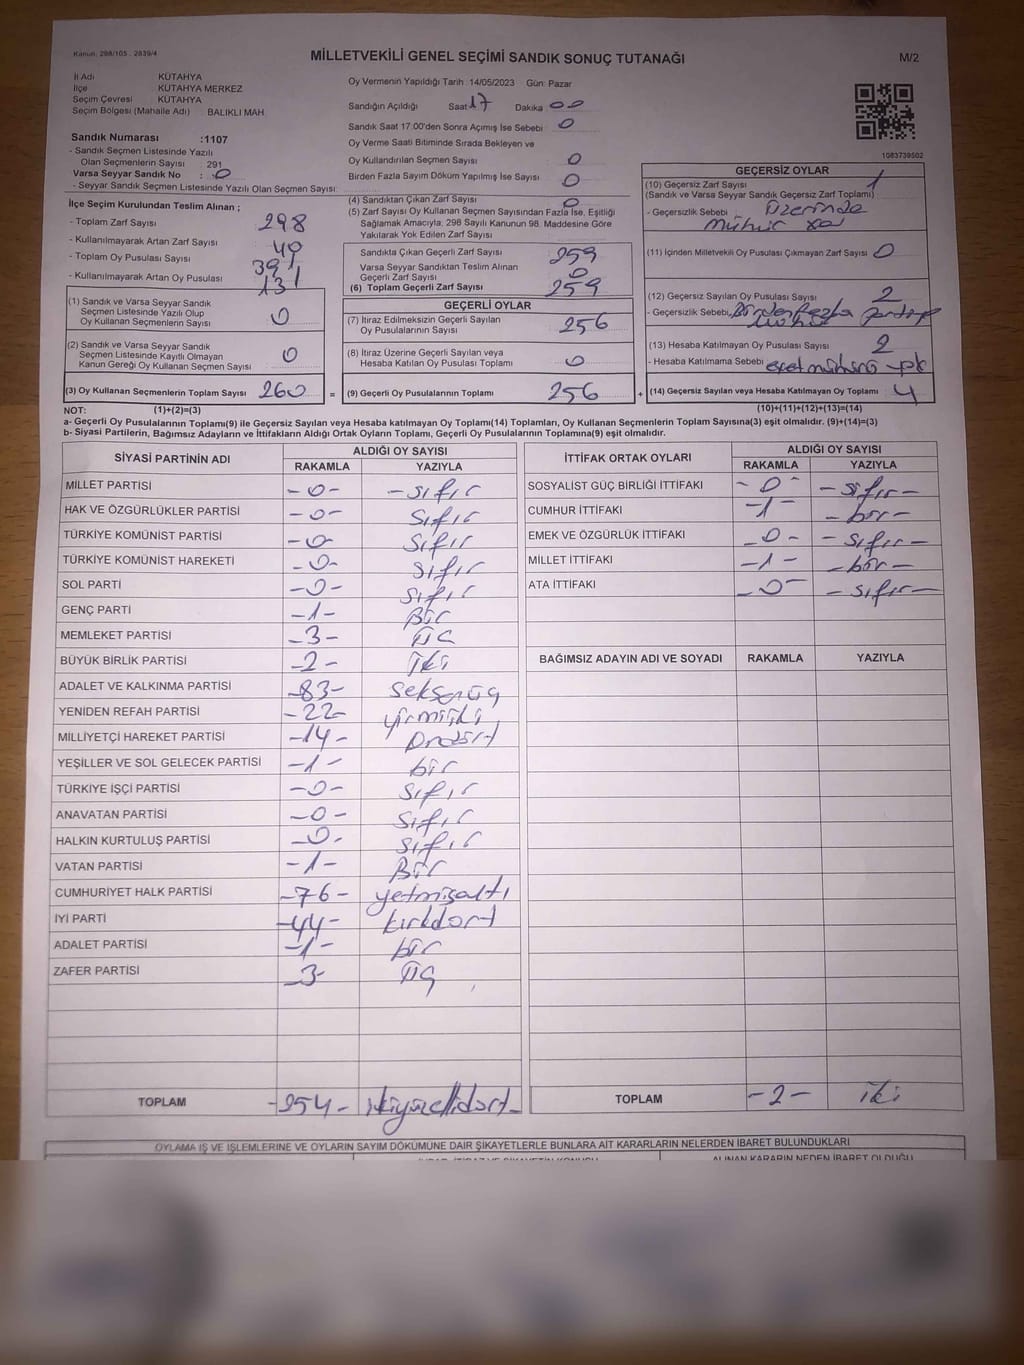 Kanun: 298/105 - 2839/4
MİLLETVEKİLİ GENEL SEÇİMİ SANDIK SONUÇ TUTANAĞI
M/2
İl Adı KÜTAHYA
İlçe KÜTAHYA MERKEZ
Seçim Çevresi KÜTAHYA
Seçim Bölgesi (Mahalle Adı) BALIKLI MAH
Sandık Numarası :1107
- Sandık Seçmen Listesinde Yazılı
Olan Seçmenlerin Sayısı : 291
Varsa Seyyar Sandık No : 0
- Seyyar Sandık Seçmen Listesinde Yazılı Olan Seçmen Sayısı:
Oy Vermenin Yapıldığı Tarih :14/05/2023 Gün: Pazar
Sandığın Açıldığı Saat 17 Dakika 00
Sandık Saat 17:00'den Sonra Açımış İse Sebebi : 0
Oy Verme Saati Bitiminde Sırada Bekleyen ve
Oy Kullandırılan Seçmen Sayısı 0
Birden Fazla Sayım Döküm Yapılmış İse Sayısı : 0
1083739502
İlçe Seçim Kurulundan Teslim Alınan ;
- Toplam Zarf Sayısı 298
- Kullanılmayarak Artan Zarf Sayısı
- Toplam Oy Pusulası Sayısı 391
- Kullanılmayarak Artan Oy Pusulası 131
(1) Sandık ve Varsa Seyyar Sandık
Seçmen Listesinde Yazılı Olup
Oy Kullanan Seçmenlerin Sayısı 0
(2) Sandık ve Varsa Seyyar Sandık
Seçmen Listesinde Kayıtlı Olmayan
Kanun Gereği Oy Kullanan Seçmen Sayısı 0
(3) Oy Kullanan Seçmenlerin Toplam Sayısı 260 =
(4) Sandıktan Çıkan Zarf Sayısı 0
(5) Zarf Sayısı Oy Kullanan Seçmen Sayısından Fazla İse, Eşitliği
Sağlamak Amacıyla, 298 Sayılı Kanunun 98. Maddesine Göre
Yakılarak Yok Edilen Zarf Sayısı
Sandıkta Çıkan Geçerli Zarf Sayısı 259
Varsa Seyyar Sandıktan Teslim Alınan
Geçerli Zarf Sayısı 0
(6) Toplam Geçerli Zarf Sayısı 259
GEÇERLİ OYLAR
(7) İtiraz Edilmeksizin Geçerli Sayılan
Oy Pusulalarının Sayısı 256
(8) İtiraz Üzerine Geçerli Sayılan veya
Hesaba Katılan Oy Pusulaları Toplamı 0
(9) Geçerli Oy Pusulalarının Toplamı 256 +
GEÇERSİZ OYLAR
(10) Geçersiz Zarf Sayısı 1
(Sandık ve Varsa Seyyar Sandık Geçersiz Zarf Toplamı)
- Geçersizlik Sebebi Üzerinde
Mühür
(11) İçinden Milletvekili Oy Pusulası Çıkmayan Zarf Sayısı 0
(12) Geçersiz Sayılan Oy Pusulası Sayısı 2
- Geçersizlik Sebebi Birden fazla partiye
mühür
(13) Hesaba Katılmayan Oy Pusulası Sayısı 2
- Hesaba Katılmama Sebebi evet mührü
(14) Geçersiz Sayılan veya Hesaba Katılmayan Oy Toplamı 4
NOT: (1)+(2)=(3) (10)+(11)+(12)+(13)=(14)
a- Geçerli Oy Pusulalarının Toplamı(9) ile Geçersiz Sayılan veya Hesaba katılmayan Oy Toplamı(14) Toplamları, Oy Kullanan Seçmenlerin Toplam Sayısına(3) eşit olmalıdır. (9)+(14)=(3)
b- Siyasi Partilerin, Bağımsız Adayların ve İttifakların Aldığı Ortak Oyların Toplamı, Geçerli Oy Pusulalarının Toplamına(9) eşit olmalıdır.
SİYASİ PARTİNİN ADI ALDIĞI OY SAYISI
RAKAMLA YAZIYLA
MİLLET PARTİSİ -0- -sıfır
HAK VE ÖZGÜRLÜKLER PARTİSİ -0- sıfır
TÜRKİYE KOMÜNİST PARTİSİ -0- sıfır
TÜRKİYE KOMÜNİST HAREKETİ -0- sıfır
SOL PARTİ -0- sıfır
GENÇ PARTİ -1- Bir
MEMLEKET PARTİSİ -3- üç
BÜYÜK BİRLİK PARTİSİ -2- iki
ADALET VE KALKINMA PARTİSİ -83- seksenüç
YENİDEN REFAH PARTİSİ -22- yirmiiki
MİLLİYETÇİ HAREKET PARTİSİ -14- ondört
YEŞİLLER VE SOL GELECEK PARTİSİ -1- bir
TÜRKİYE İŞÇİ PARTİSİ -0- sıfır
ANAVATAN PARTİSİ -0- sıfır
HALKIN KURTULUŞ PARTİSİ -0- sıfır
VATAN PARTİSİ -1- Bir
CUMHURİYET HALK PARTİSİ -76- yetmişaltı
İYİ PARTİ -44- kırkdört
ADALET PARTİSİ -1- bir
ZAFER PARTİSİ -3- üç
TOPLAM -254- ikiyüzellidört-
İTTİFAK ORTAK OYLARI ALDIĞI OY SAYISI
RAKAMLA YAZIYLA
SOSYALİST GÜÇ BİRLİĞİ İTTİFAKI -0- -sıfır-
CUMHUR İTTİFAKI -1- -bir-
EMEK VE ÖZGÜRLÜK İTTİFAKI -0- -sıfır-
MİLLET İTTİFAKI -1- -bir-
ATA İTTİFAKI -0- -sıfır-
BAĞIMSIZ ADAYIN ADI VE SOYADI RAKAMLA YAZIYLA
TOPLAM -2- iki
OYLAMA İŞ VE İŞLEMLERİNE VE OYLARIN SAYIM DÖKÜMÜNE DAİR ŞİKAYETLERLE BUNLARA AİT KARARLARIN NELERDEN İBARET BULUNDUKLARI
ALINAN KARARIN NEDEN İBARET OLDUĞU